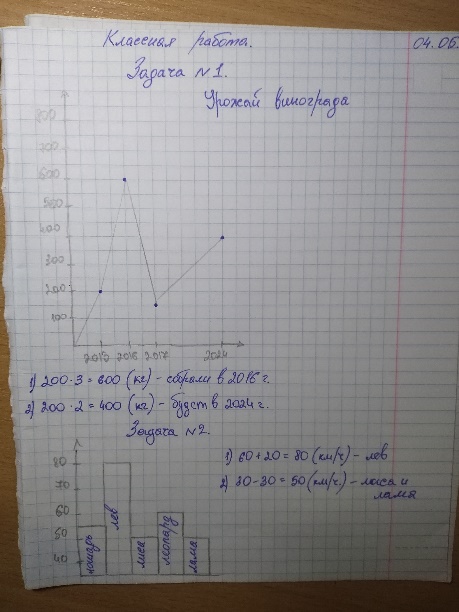 Классная работа. 04.06.
Задача №1.
Урожай винограда
800
700
600
500
400
300
200
100
2015 2016 2017 2024
1) 200·3 = 600 (кг) - собрали в 2016 г.
2) 200·2 = 400 (кг) - будет в 2024 г.
Задача №2.
1) 60+20 = 80 (км/ч) - лев
2) 80-30 = 50 (км/ч) - лиса и
лама
80
70
60
50
40
лошадь
лев
лиса
леопард
лама